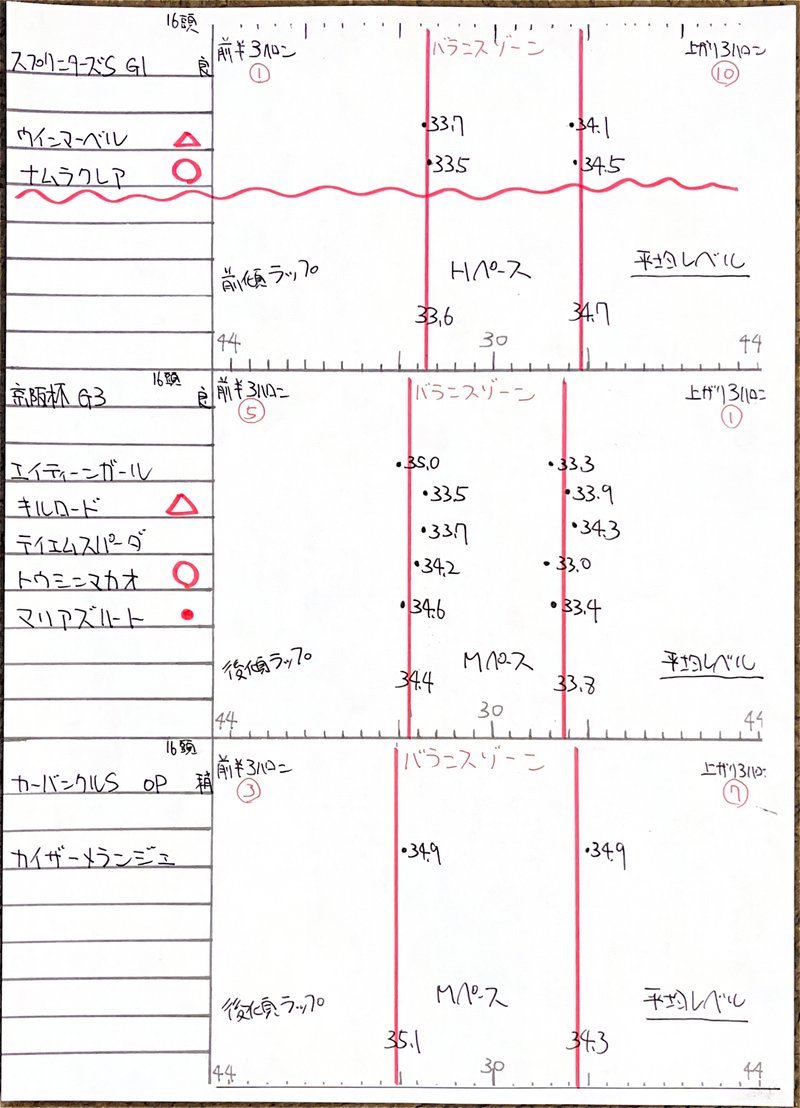 16頭
スプリンターズS G1 良
前半3ハロン バランスゾーン 上がり3ハロン
① ⑩
ウインマーベル △ 33.7 34.1
ナムラクレア ○ 33.5 34.5
前傾ラップ Hペース 平均レベル
33.6 34.7
44 30 44
16頭
京阪杯 G3 良
前半3ハロン バランスゾーン 上がり3ハロン
⑤ ①
エイティーンガール 35.0 33.3
キルロード △ 33.5 33.9
テイエムスパーダ 33.7 34.3
トウシンマカオ ○ 34.2 33.0
マリアズハート ● 34.6 33.4
後傾ラップ Mペース 平均レベル
34.4 33.8
44 30 44
16頭
カーバンクルS OP 稍
前半3ハロン バランスゾーン 上がり3ハロン
③ ⑦
カイザーメランジェ 34.9 34.9
後傾ラップ Mペース 平均レベル
35.1 34.3
44 30 44